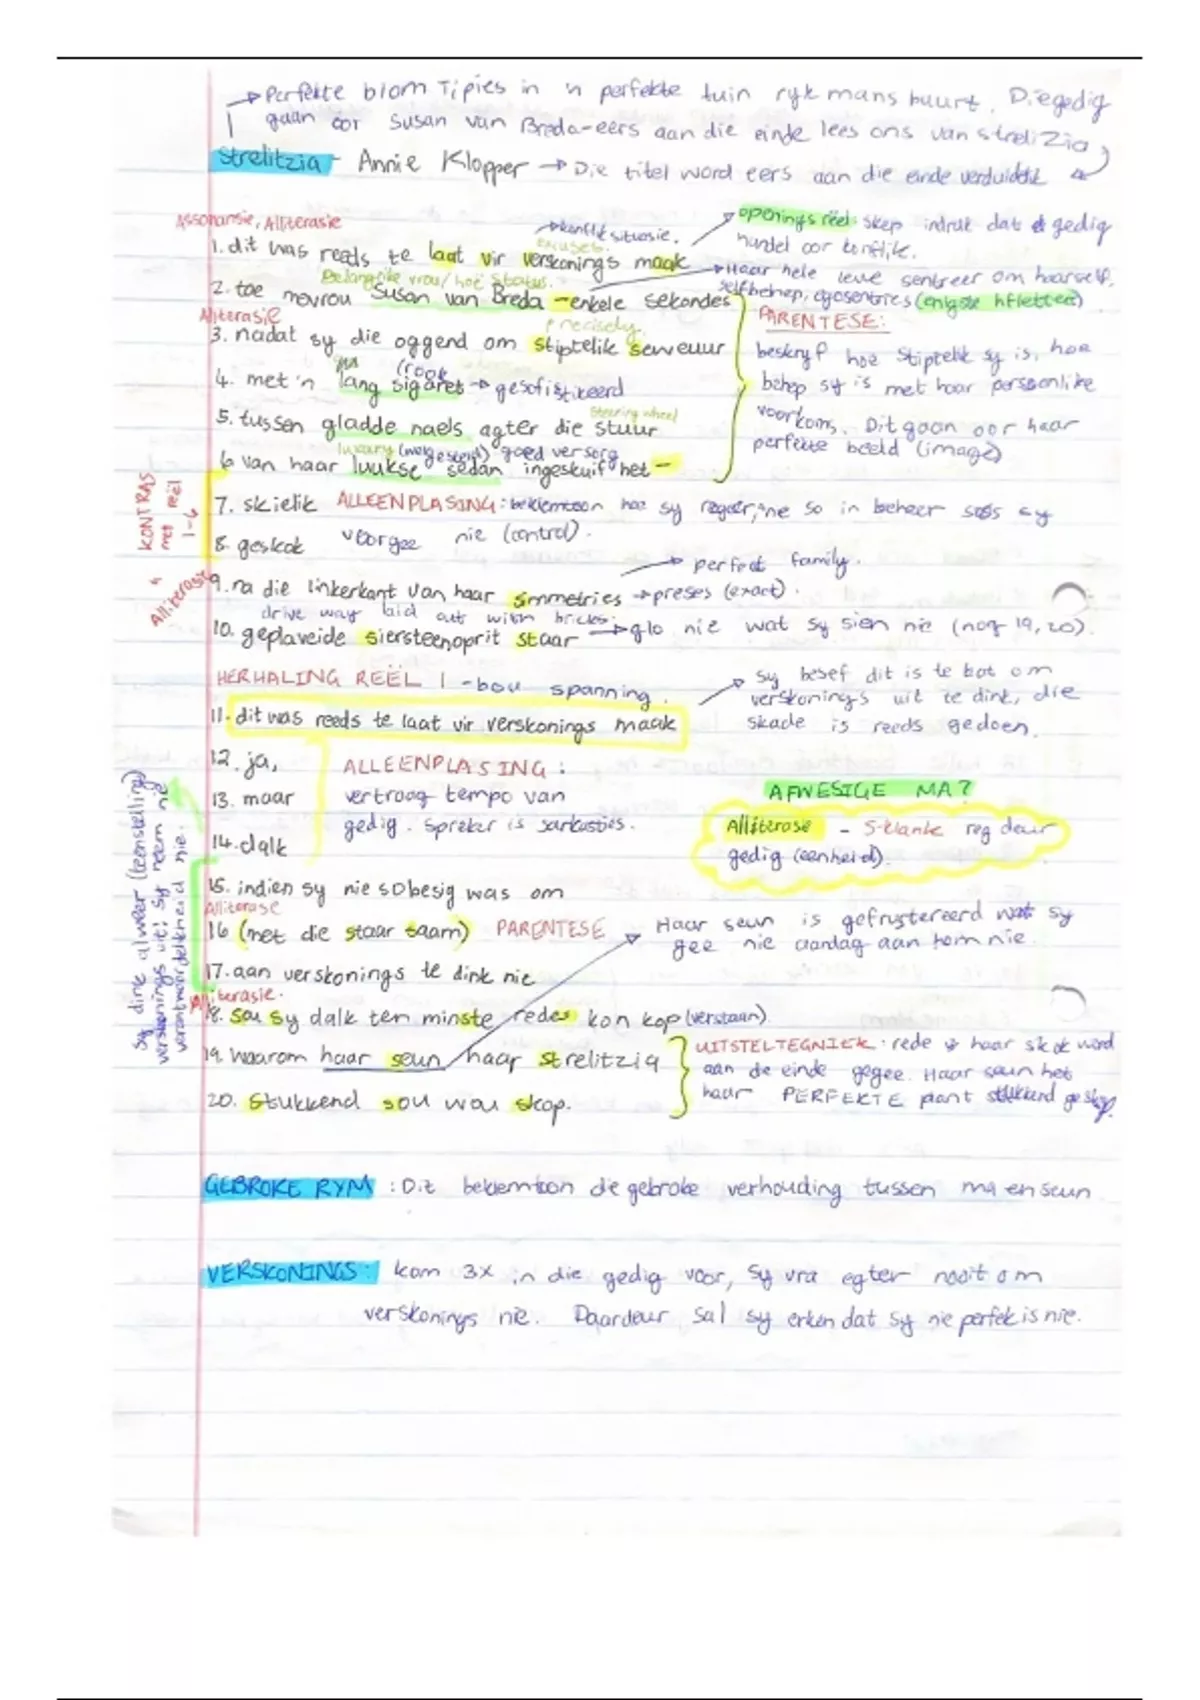 Perfekte blom Tipies in 'n perfekte tuin ryk mans buurt. Die gedig
gaan oor Susan van Breda-eers aan die einde lees ons van strelizia
Strelitzia - Annie Klopper → Die titel word eers aan die einde verduidelik
Assonansie, Alliterasie
konfliksituasie.
excuses.
openings reël: skep indruk dat gedig
handel oor konflik.
1. dit was reeds te laat vir verskonings maak
Belangrike vrou/hoë status.
Haar hele lewe sentreer om haarself,
selfbehep, egosentries (enigste hfletter)
2. toe mevrou Susan van Breda - enkele sekondes
Aliterasie
precisely.
PARENTESE:
3. nadat sy die oggend om stiptelik seweuur
beskryf hoe stiptelik sy is, hoe
(rook
4. met 'n lang sigaret → gesofistikeerd
behep sy is met haar persoonlike
steering wheel
voorkoms. Dit gaan oor haar
5. tussen gladde naels agter die stuur
perfekte beeld (image)
luxury (welgesteld) goed versorg
6 van haar luukse sedan ingeskuif het -
KONTRAS
met reël
1-6
7. skielik ALLEENPLASING: beklemtoon hoe sy reageer, ne so in beheer soos sy
voorgee nie (control).
8. geskok
perfect family.
Alliterasie
9. na die linkerkant van haar simmetries → preses (exact).
drive way laid out with bricks.
10. geplaveide siersteenoprit staar → glo nie wat sy sien nie (nog 19, 20).
HERHALING REËL 1 - bou spanning.
sy besef dit is te laat om
verskonings uit te dink, die
skade is reeds gedoen.
11. dit was reeds te laat vir verskonings maak
12. ja,
ALLEENPLASING:
13. maar
vertraag tempo van
gedig. Spreker is sarkasties.
14. dalk
AFWESIGE MA?
Alliterase - S-klank reg deur
gedig (eenheid).
Sy dink alweer (teenstelling)
verskonings uit: Sy neem nie
verantwoordelikheid nie.
15. indien sy nie so besig was om
Alliterase
16 (met die staar saam) PARENTESE
Haar seun is gefrustreerd want sy
gee nie aandag aan hom nie.
17. aan verskonings te dink nie
Alliterasie.
18. sou sy dalk ten minste redes kon kop (verstaan)
19. waarom haar seun haar strelitzia
UITSTELTEGNIEK: rede haar skok word
aan die einde gegee. Haar seun het
haar PERFEKTE plant stukkend geskop.
20. stukkend sou wou skop.
GEBROKE RYM : Dit beklemtoon die gebroke verhouding tussen ma en seun
VERSKONINGS: kom 3x in die gedig voor, sy vra egter nooit om
verskonings nie. Daardeur sal sy erken dat sy nie perfek is nie.